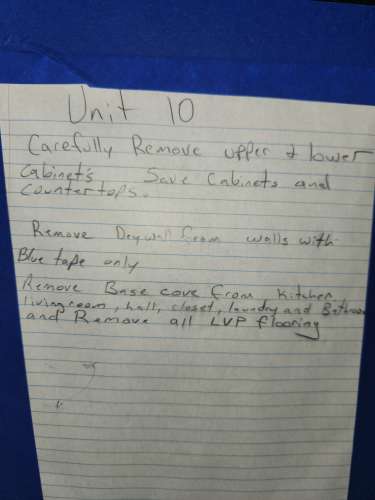 Unit 10
Carefully Remove upper & lower
Cabinets. Save Cabinets and
Countertops.
Remove Drywall from walls with
Blue tape only
Remove Base cove from Kitchen,
livingroom, hall, closet, laundry and Bathroom
and Remove all LVP flooring